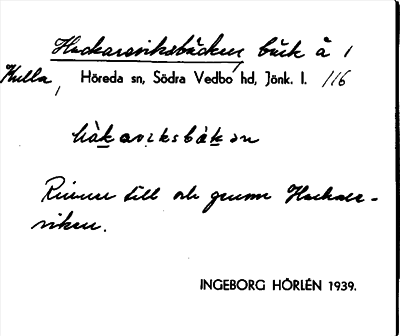 Hackaresviksbäcken, bäck å 1
Kulla, Höreda sn, Södra Vedbo hd, Jönk. l. 116
håkaviksbäkən
Rinner till och genom Hackare-
viken.
INGEBORG HÖRLÉN 1939.